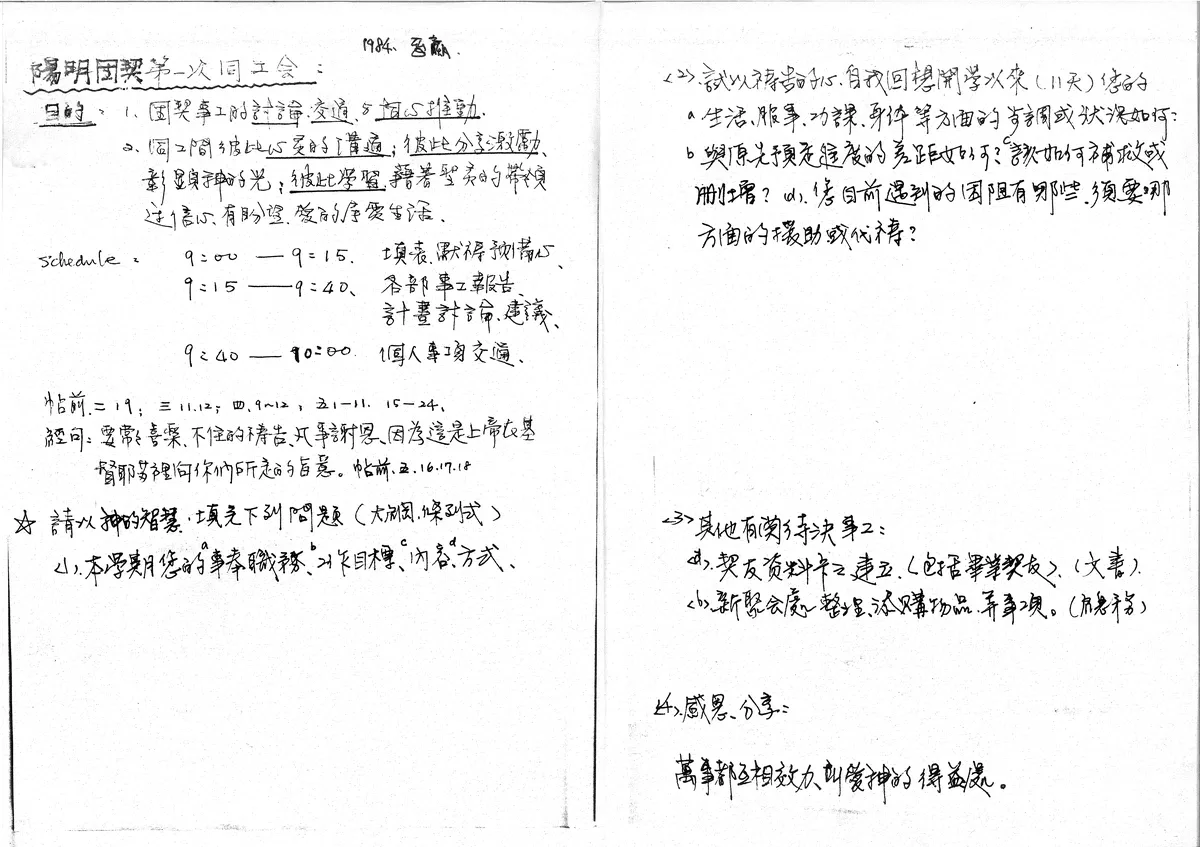 1984.
陽明团契第一次同工会：
目的：1、团契事工的討論、交通、与同心推動.
2、同工間彼此心灵的溝通；彼此分享激勵、
彰显神的光；彼此學習、藉著聖灵的帶領
过信心、有盼望、愛的屬灵生活.
schedule： 9：00 — 9：15. 填表、默禱預備心、
9：15 — 9：40、 各部事工報告、
計畫討論、建議、
9：40 — 10：00. 個人事項交通、
帖前.二19；三11.12；四.9~12；五1-11. 15-24.
經句：要常常喜樂、不住的禱告、凡事謝恩、因為這是上帝在基
督耶穌裡向你們所定的旨意。帖前.五.16.17.18
☆ 請以神的智慧、填完下列問題（大綱.條列式）
<1>.本學期您的a事奉職務、b工作目標、c內容、d方式、
<2>.試以禱告的心.自我回想開學以來（11天）您的
a.生活、服事、功課、身体等方面的步調或状况如何：
b.與原先預定進度的差距如何？c該如何補救或
刪增？d.您目前遇到的困阻有那些、須要哪
方面的援助或代禱？
<3>其他有関待決事工：
<a>.契友資料卡之建立.（包括畢業契友）、（文書）.
<b>.新聚会處整理、添購物品.等事項。（總務）
<4>.感恩、分享：
萬事都互相效力、叫愛神的得益處。